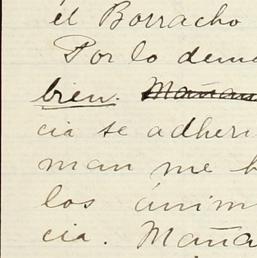 el Borracho
Por lo dem
bien. Mañan
cia se adheri
man me h
los ánim
cia. Maña